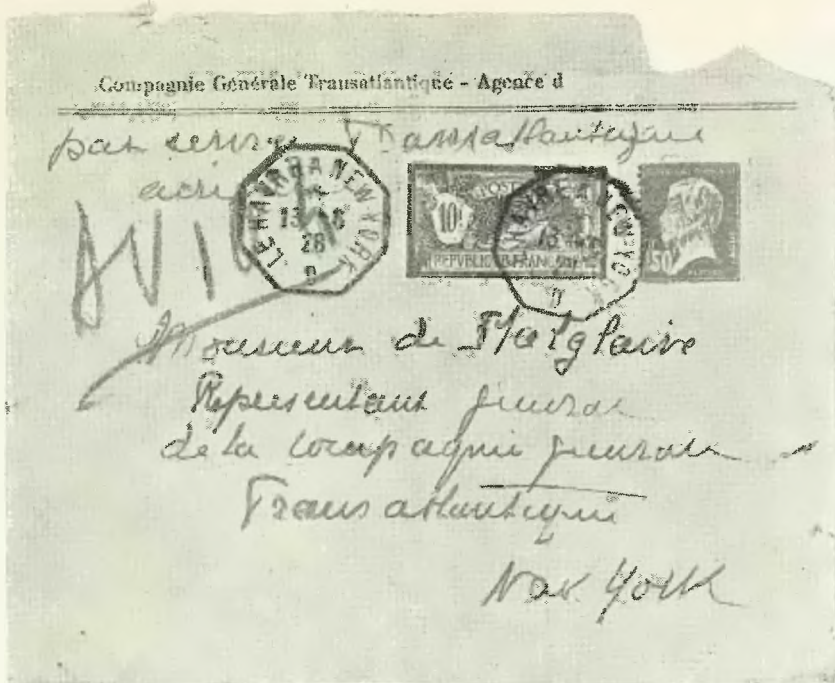 Compagnie Générale Transatlantique - Agence d
par service Transatlantique
LE HAVRE A NEW YORK
28
D
10f
POSTE
REPUBLIQUE FRANCAISE
HAVRE A NEW-YORK
13
D
50
Monsieur de
Representant general
de la Compagnie generale
Transatlantique
New York